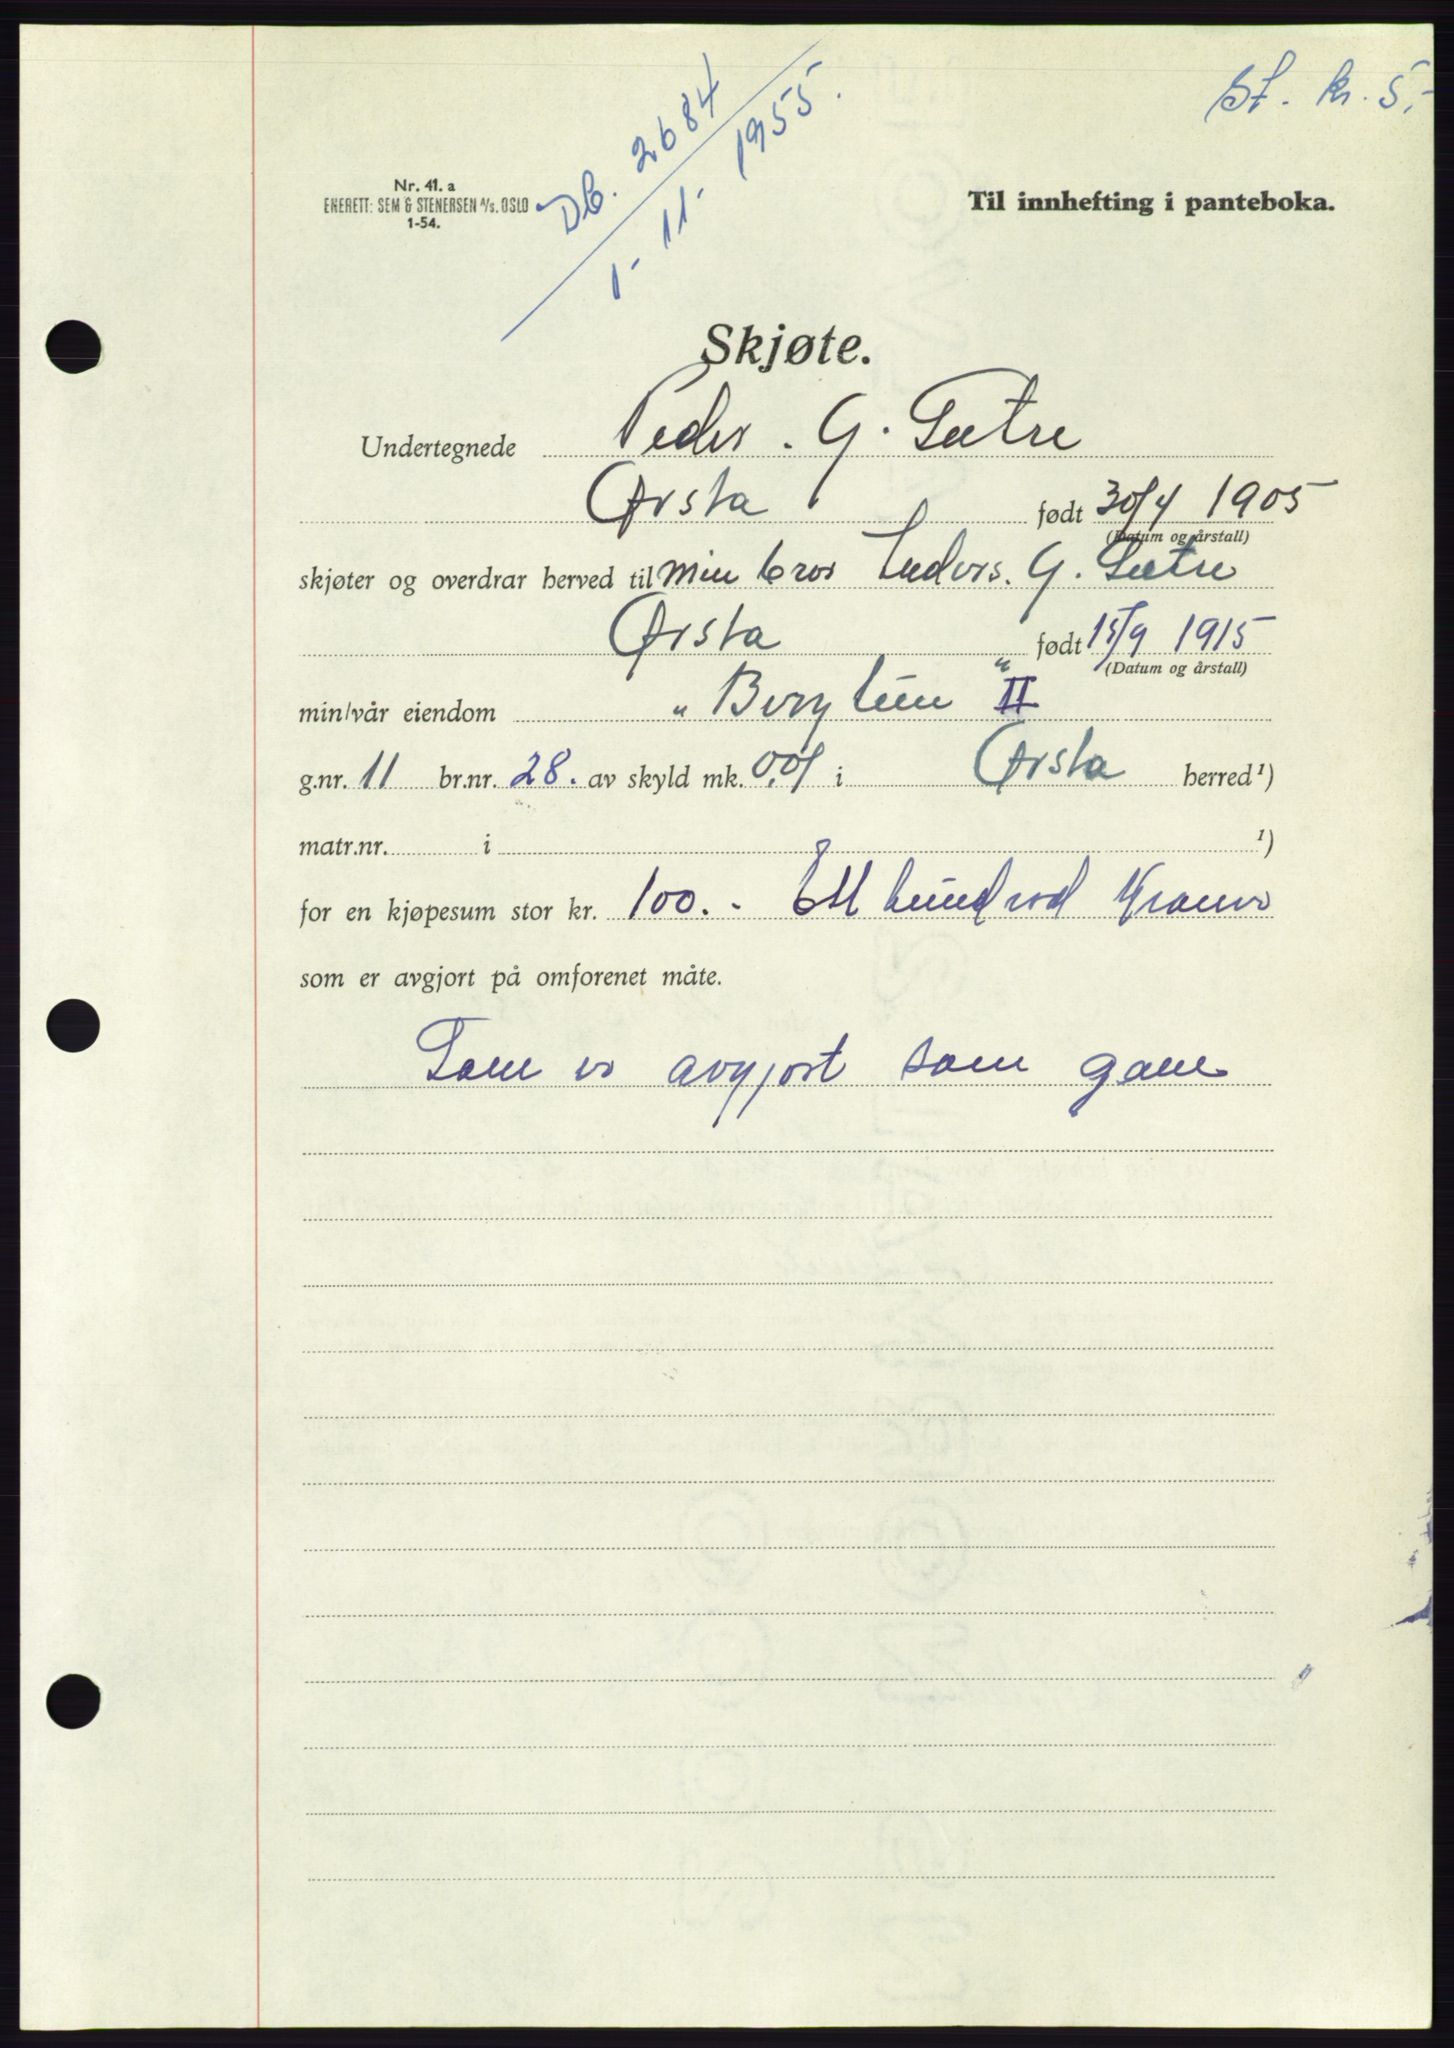 St. kr. 5.-
Db. 2684
1-11-1955.
Nr. 41. a
ENERETT: SEM & STENERSEN A/S. OSLO
1-54.
Til innhefting i panteboka.
Skjøte.
Undertegnede Peder. G. Sætre
Ørsta født 30/4 1905
(Datum og årstall)
skjøter og overdrar herved til min bror Anders. G. Sætre
Ørsta født 15/9 1915
(Datum og årstall)
min/vår eiendom "Bergheim" II
g.nr. 11 br.nr. 28. av skyld mk. 0,01 i Ørsta herred ¹)
matr.nr. i ¹)
for en kjøpesum stor kr. 100.- Ett hundred Kroner
som er avgjort på omforenet måte.
Som er avgjort som gave